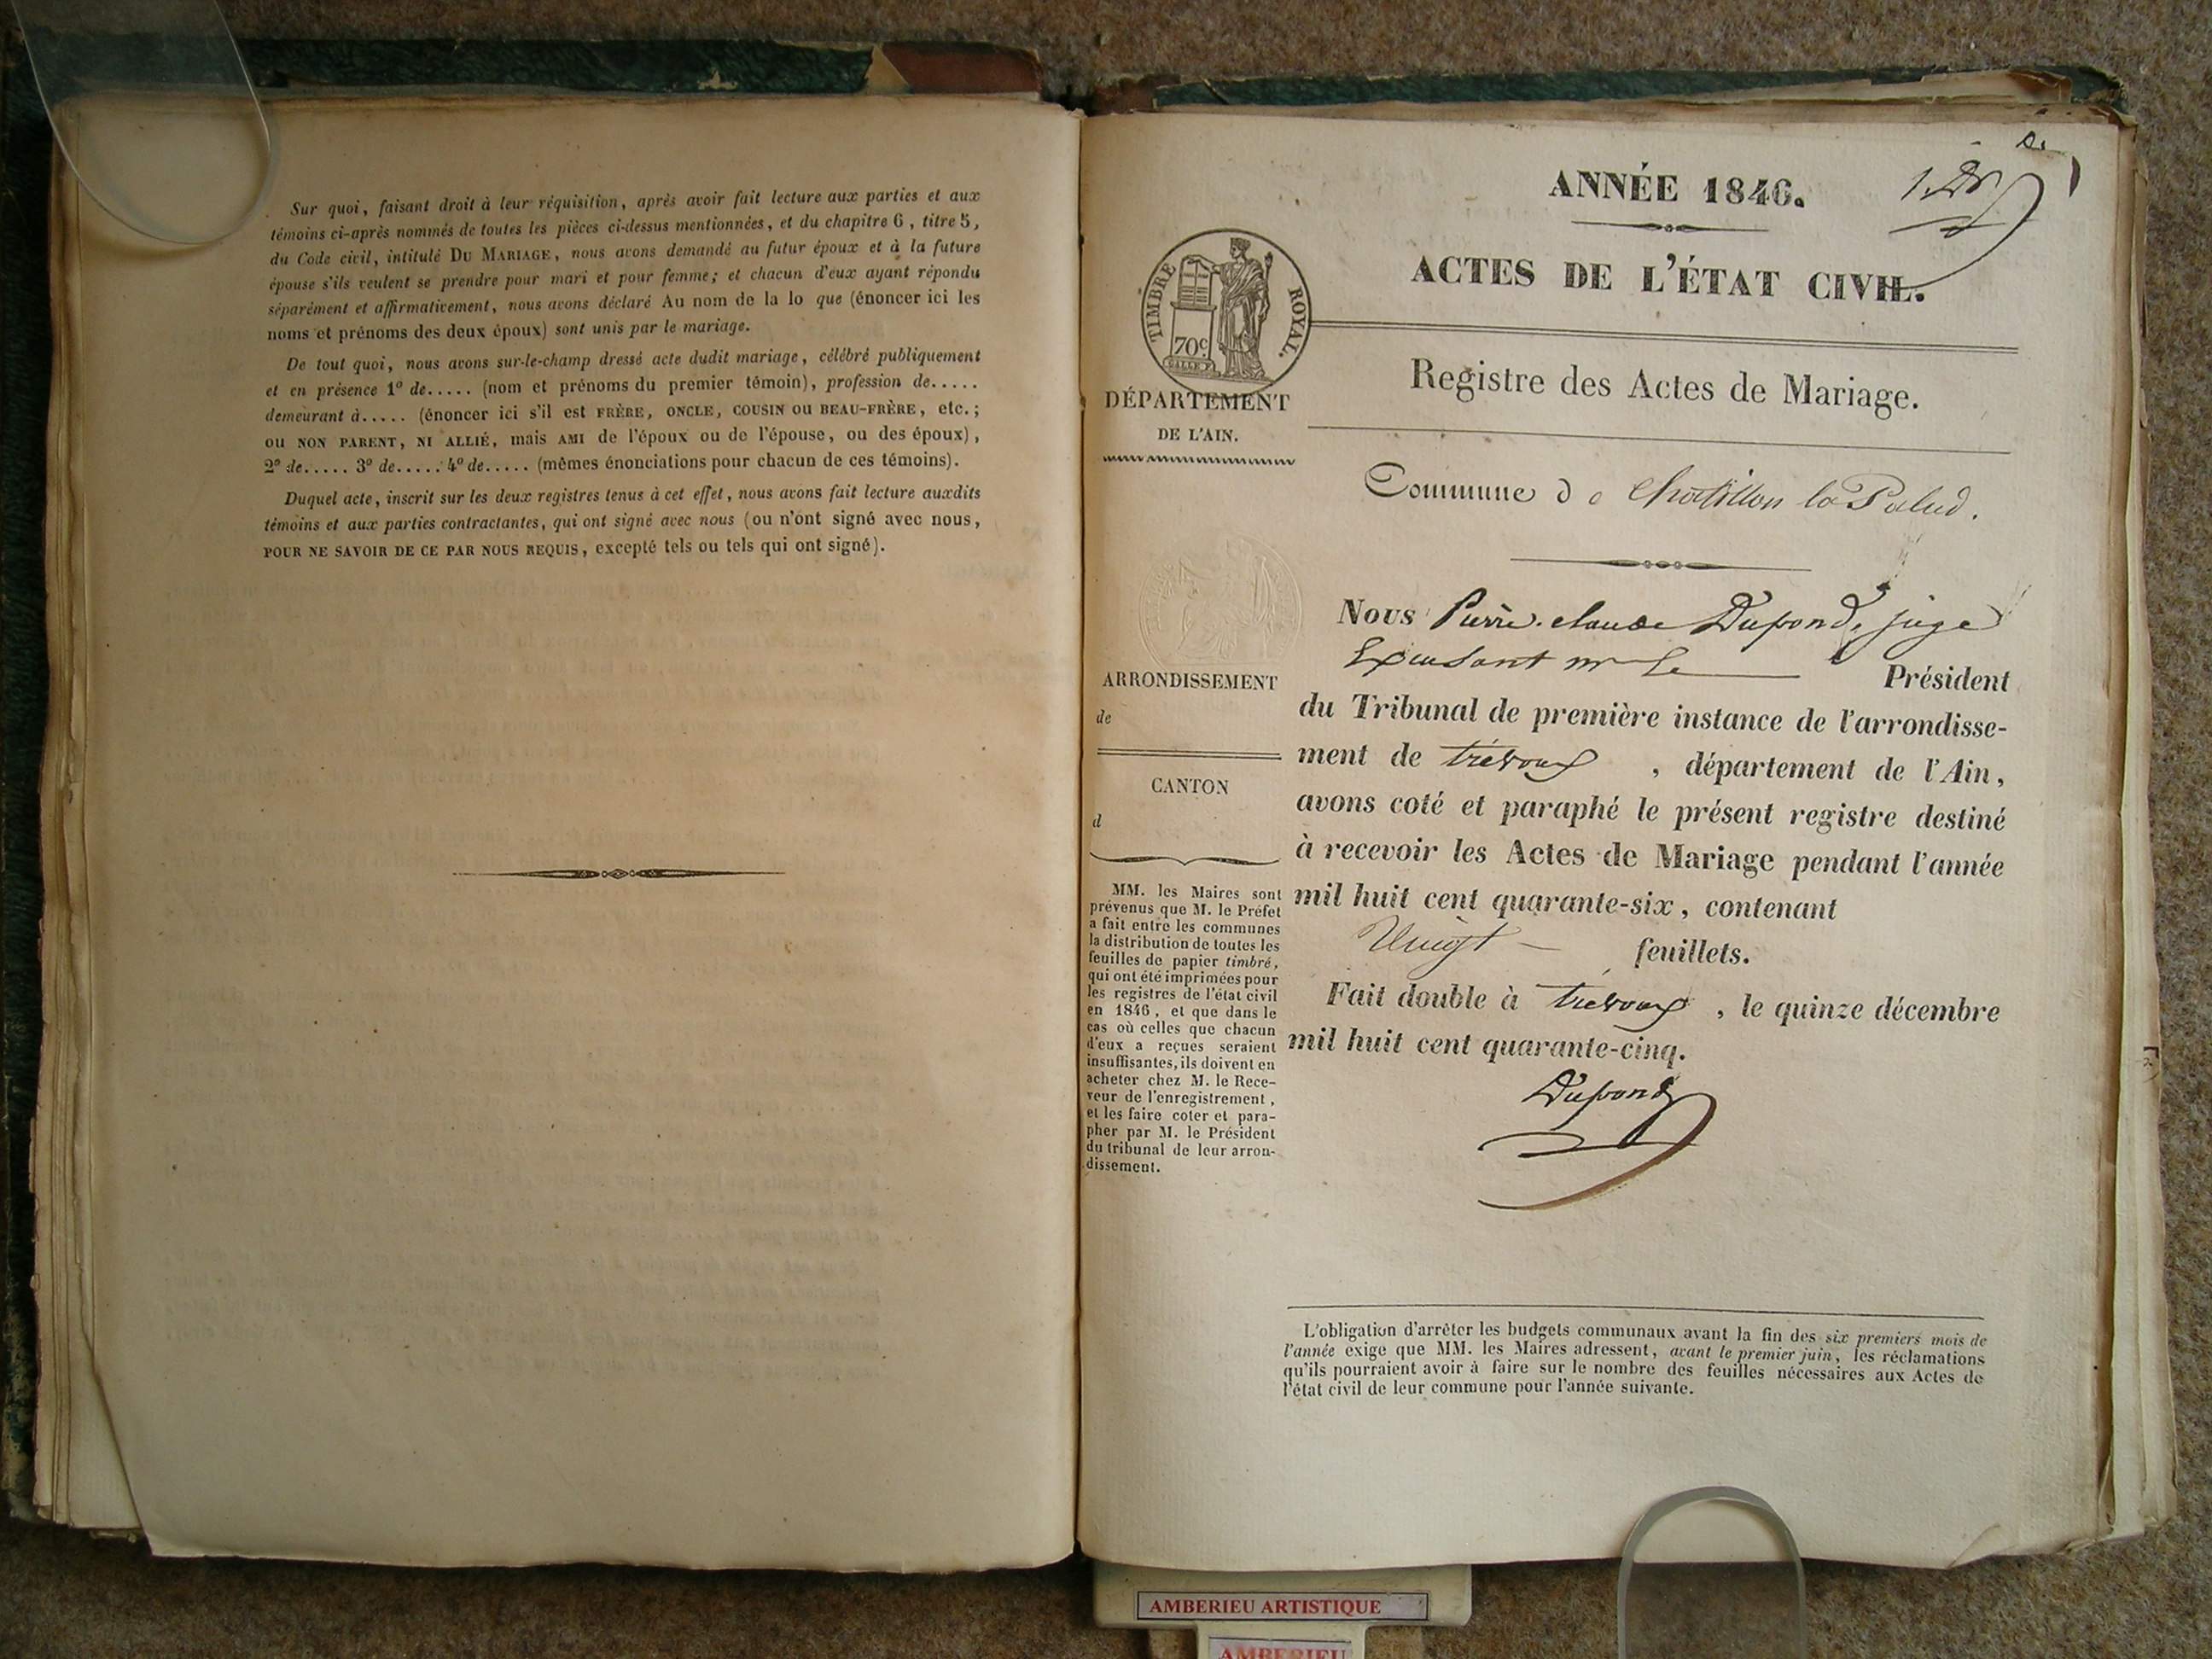 Sur quoi, faisant droit à leur réquisition, après avoir fait lecture aux parties et aux
témoins ci-après nommés de toutes les pièces ci-dessus mentionnées, et du chapitre 6, titre 5,
du Code civil, intitulé DU MARIAGE, nous avons demandé au futur époux et à la future
épouse s'ils veulent se prendre pour mari et pour femme; et chacun d'eux ayant répondu
séparément et affirmativement, nous avons déclaré Au nom de la lo que (énoncer ici les
noms et prénoms des deux époux) sont unis par le mariage.
De tout quoi, nous avons sur-le-champ dressé acte dudit mariage, célébré publiquement
et en présence 1º de..... (nom et prénoms du premier témoin), profession de.....
demeurant à..... (énoncer ici s'il est FRÈRE, ONCLE, COUSIN OU BEAU-FRÈRE, etc.;
ou NON PARENT, NI ALLIÉ, mais AMI de l'époux ou de l'épouse, ou des époux),
2º de..... 3º de..... 4º de..... (mêmes énonciations pour chacun de ces témoins).
Duquel acte, inscrit sur les deux registres tenus à cet effet, nous avons fait lecture auxdits
témoins et aux parties contractantes, qui ont signé avec nous (ou n'ont signé avec nous,
POUR NE SAVOIR DE CE PAR NOUS REQUIS, excepté tels ou tels qui ont signé).
ANNÉE 1846.
ACTES DE L'ÉTAT CIVIL.
TIMBRE ROYAL.
70c
DÉPARTEMENT
DE L'AIN.
Registre des Actes de Mariage.
Commune d e Chatillon la Palud.
ARRONDISSEMENT
de
CANTON
d
MM. les Maires sont
prévenus que M. le Préfet
a fait entre les communes
la distribution de toutes les
feuilles de papier timbré,
qui ont été imprimées pour
les registres de l'état civil
en 1846, et que dans le
cas où celles que chacun
d'eux a reçues seraient
insuffisantes, ils doivent en
acheter chez M. le Rece-
veur de l'enregistrement,
et les faire coter et para-
pher par M. le Président
du tribunal de leur arron-
dissement.
Nous Pierre-claude Dupond, juge
Président
du Tribunal de première instance de l'arrondisse-
ment de trévoux, département de l'Ain,
avons coté et paraphé le présent registre destiné
à recevoir les Actes de Mariage pendant l'année
mil huit cent quarante-six, contenant
Vingt feuillets.
Fait double à trévoux, le quinze décembre
mil huit cent quarante-cinq.
Dupond
L'obligation d'arrêter les budgets communaux avant la fin des six premiers mois de
l'année exige que MM. les Maires adressent, avant le premier juin, les réclamations
qu'ils pourraient avoir à faire sur le nombre des feuilles nécessaires aux Actes de
l'état civil de leur commune pour l'année suivante.
AMBERIEU ARTISTIQUE
AMBERIEU